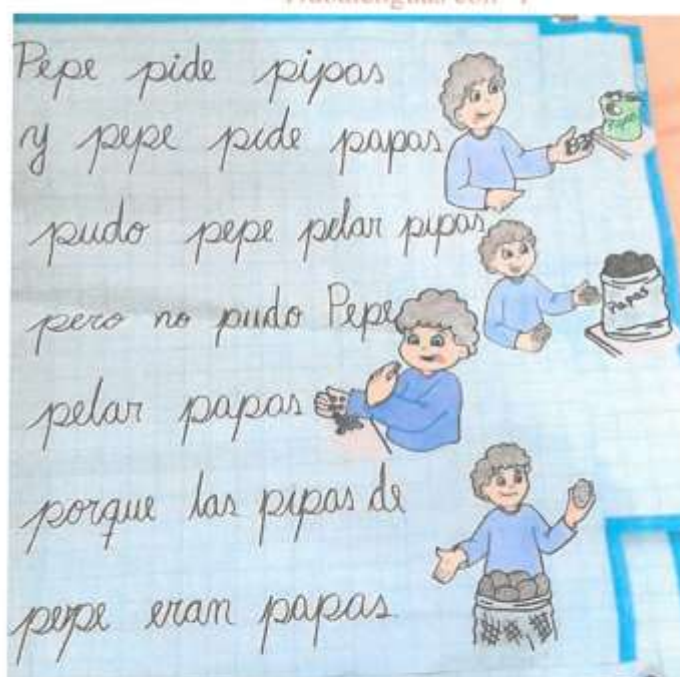 Pepe pide pipas
y pepe pide papas
pudo pepe pelar pipas
pero no pudo Pepe
Papas
pelar papas
porque las pipas de
pepe eran papas